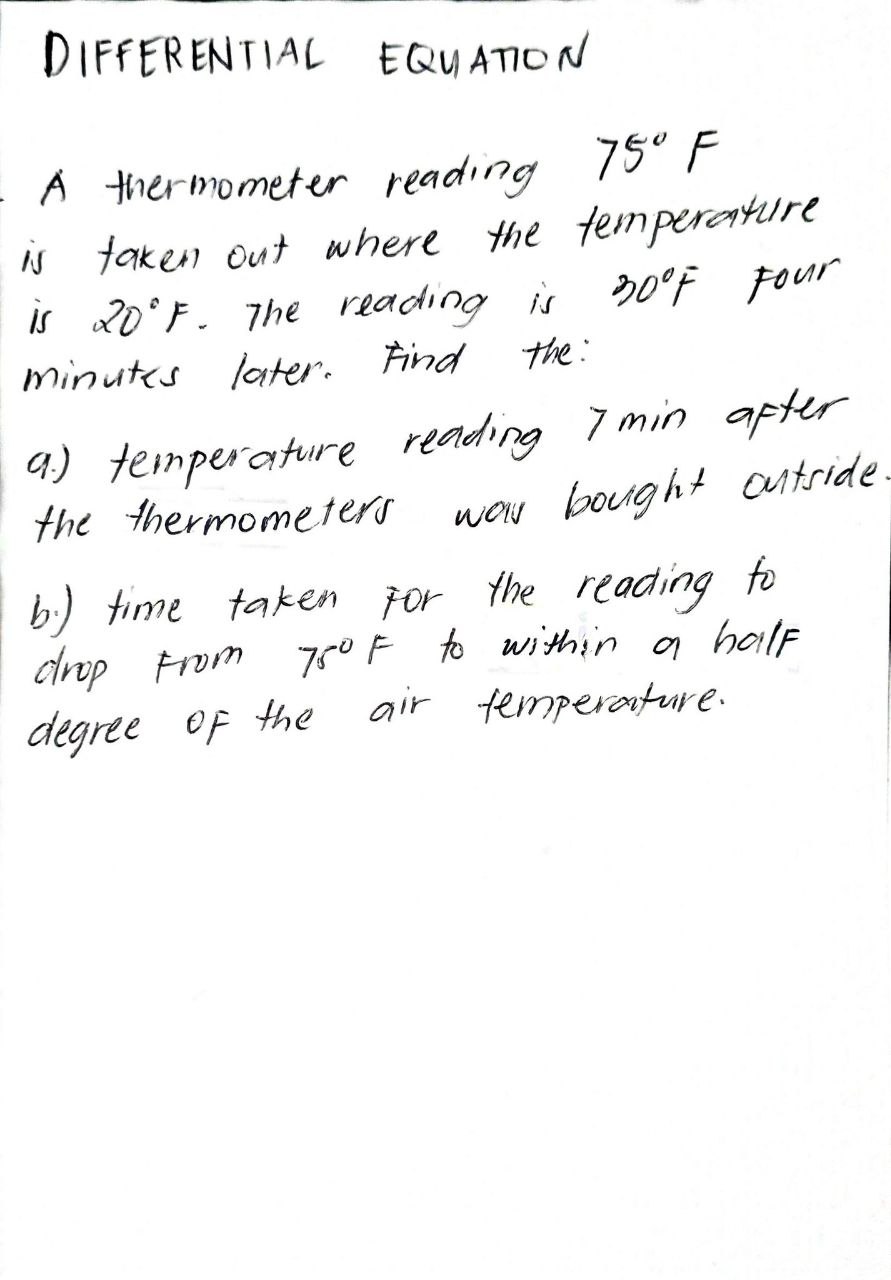 DIFFERENTIAL EQUATION
A thermometer reading 75° F
is taken out where the temperature
is 20°F. The reading is 30°F Four
minutes later. Find the:
a.) temperature reading 7 min after
the thermometers was bought outside.
b.) time taken For the reading to
drop From 75° F to within a half
degree OF the air temperature.